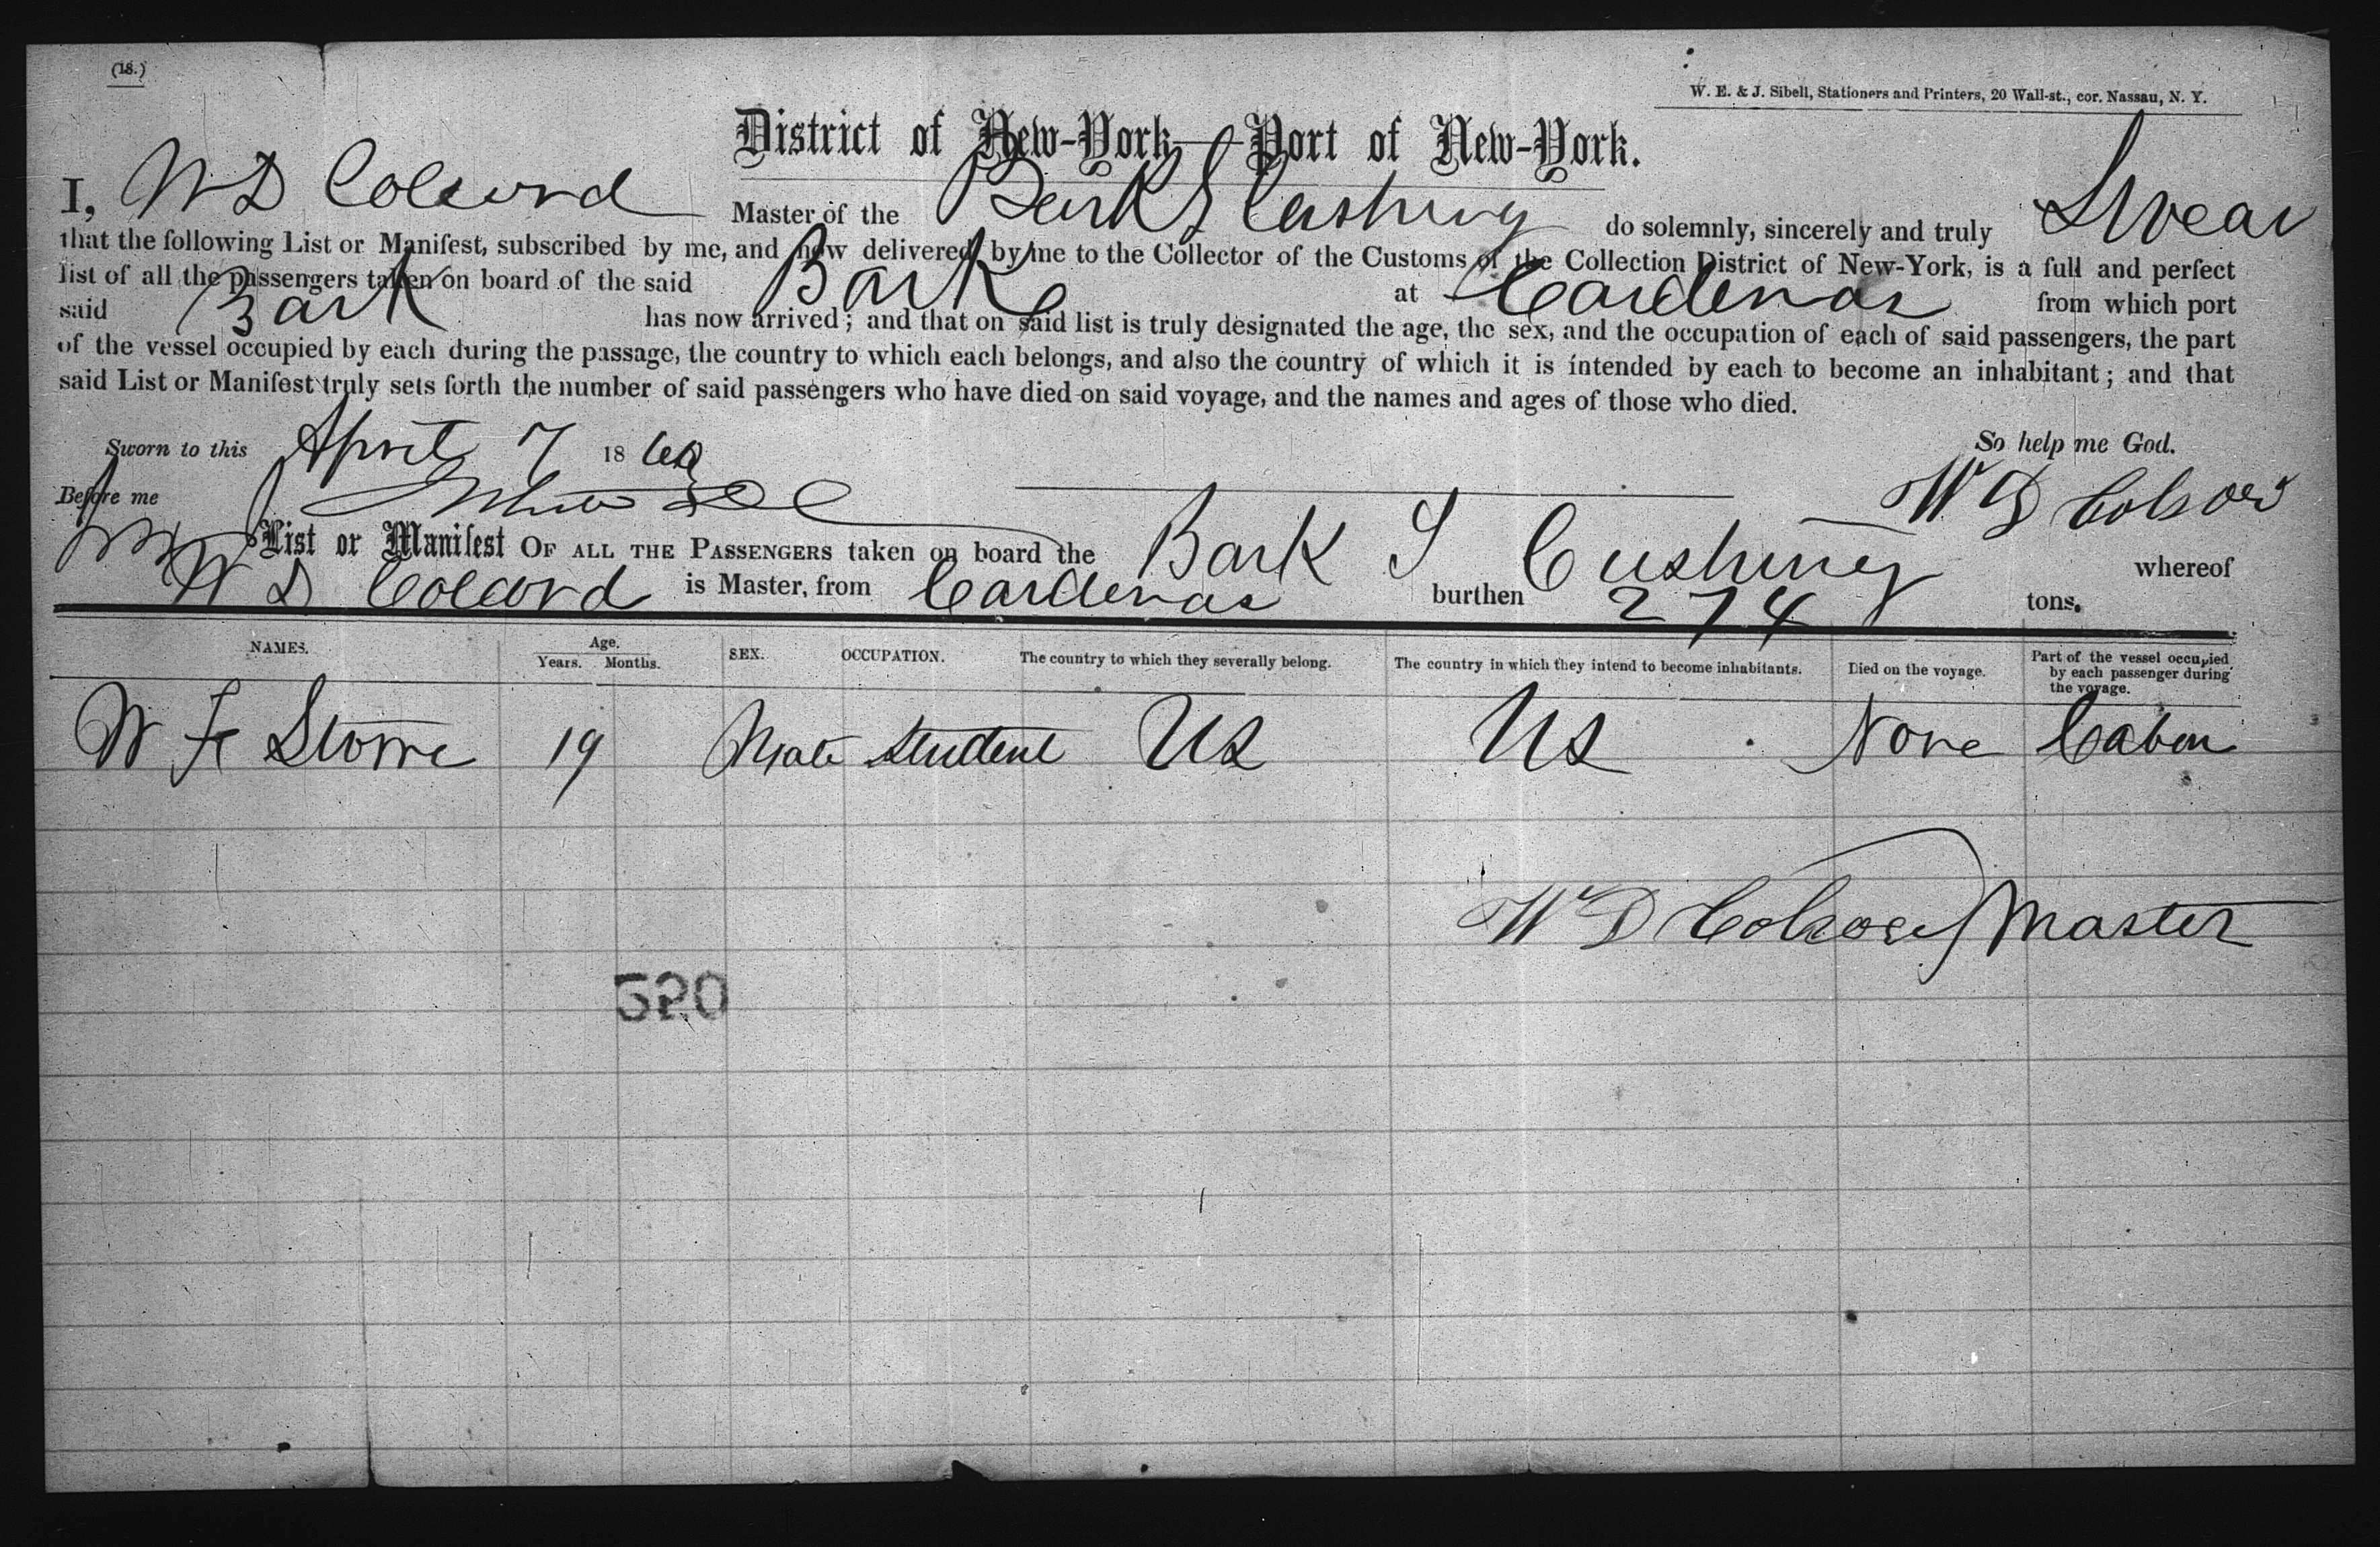 (18.)
W. E. & J. Sibell, Stationers and Printers, 20 Wall-st., cor. Nassau, N. Y.
District of New-York—Port of New-York.
I, W D Colcord Master of the Bark S Cushing do solemnly, sincerely and truly Swear
that the following List or Manifest, subscribed by me, and now delivered by me to the Collector of the Customs of the Collection District of New-York, is a full and perfect
list of all the passengers taken on board of the said Bark at Cardenas from which port
said Bark has now arrived; and that on said list is truly designated the age, the sex, and the occupation of each of said passengers, the part
of the vessel occupied by each during the passage, the country to which each belongs, and also the country of which it is intended by each to become an inhabitant; and that
said List or Manifest truly sets forth the number of said passengers who have died on said voyage, and the names and ages of those who died.
Sworn to this April 7 18 So help me God.
Before me W D Colcord
List or Manifest OF ALL THE PASSENGERS taken on board the Bark S Cushing whereof
W D Colcord is Master, from Cardenas burthen 274 tons.
NAMES. Age. Years. Months. SEX. OCCUPATION. The country to which they severally belong. The country in which they intend to become inhabitants. Died on the voyage. Part of the vessel occupied by each passenger during the voyage.
W F Stowe 19 Male Student US US None Cabin
W D Colcord Master
590